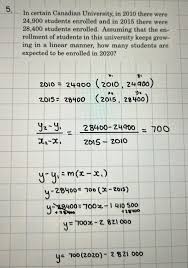 5.
In certain Canadian University, in 2010 there were
24,900 students enrolled and in 2015 there were
28,400 students enrolled. Assuming that the en-
rollment of students in this university keeps grow-
ing in a linear manner, how many students are
expected to be enrolled in 2020?
x₁ y₁
2010 = 24900 (2010, 24900)
x₂ y₂
2015 = 28400 (2015, 28400)
y₂-y₁ = 28400-24900 = 700
x₂-x₁ 2015 - 2010
y-y₁ = m(x-x₁)
y-28400 = 700(x-2015)
y-28400 = 700x-1 410 500
+28400 +28400
y = 700x - 2 821 000
y = 700(2020) - 2 821 000